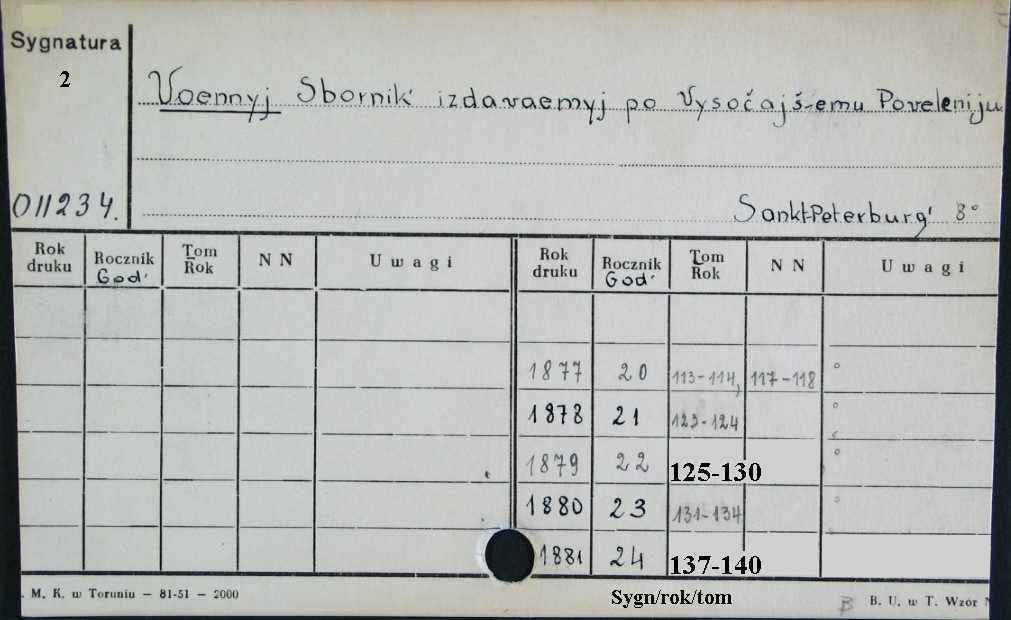 Sygnatura
2
Voennyj Sbornik' izdavaemyj po Vysočajš-emu Poveleniju
011234.
Sankt-Peterburg' 8°
Rok druku Rocznik God' Tom Rok N N Uwagi Rok druku Rocznik God' Tom Rok N N Uwagi
1877 20 113-114, 117-118
1878 21 123-124
1879 22 125-130
1880 23 131-134
1881 24 137-140
. M. K. w Toruniu — 81-51 — 2000 Sygn/rok/tom B. U. w T. Wzór